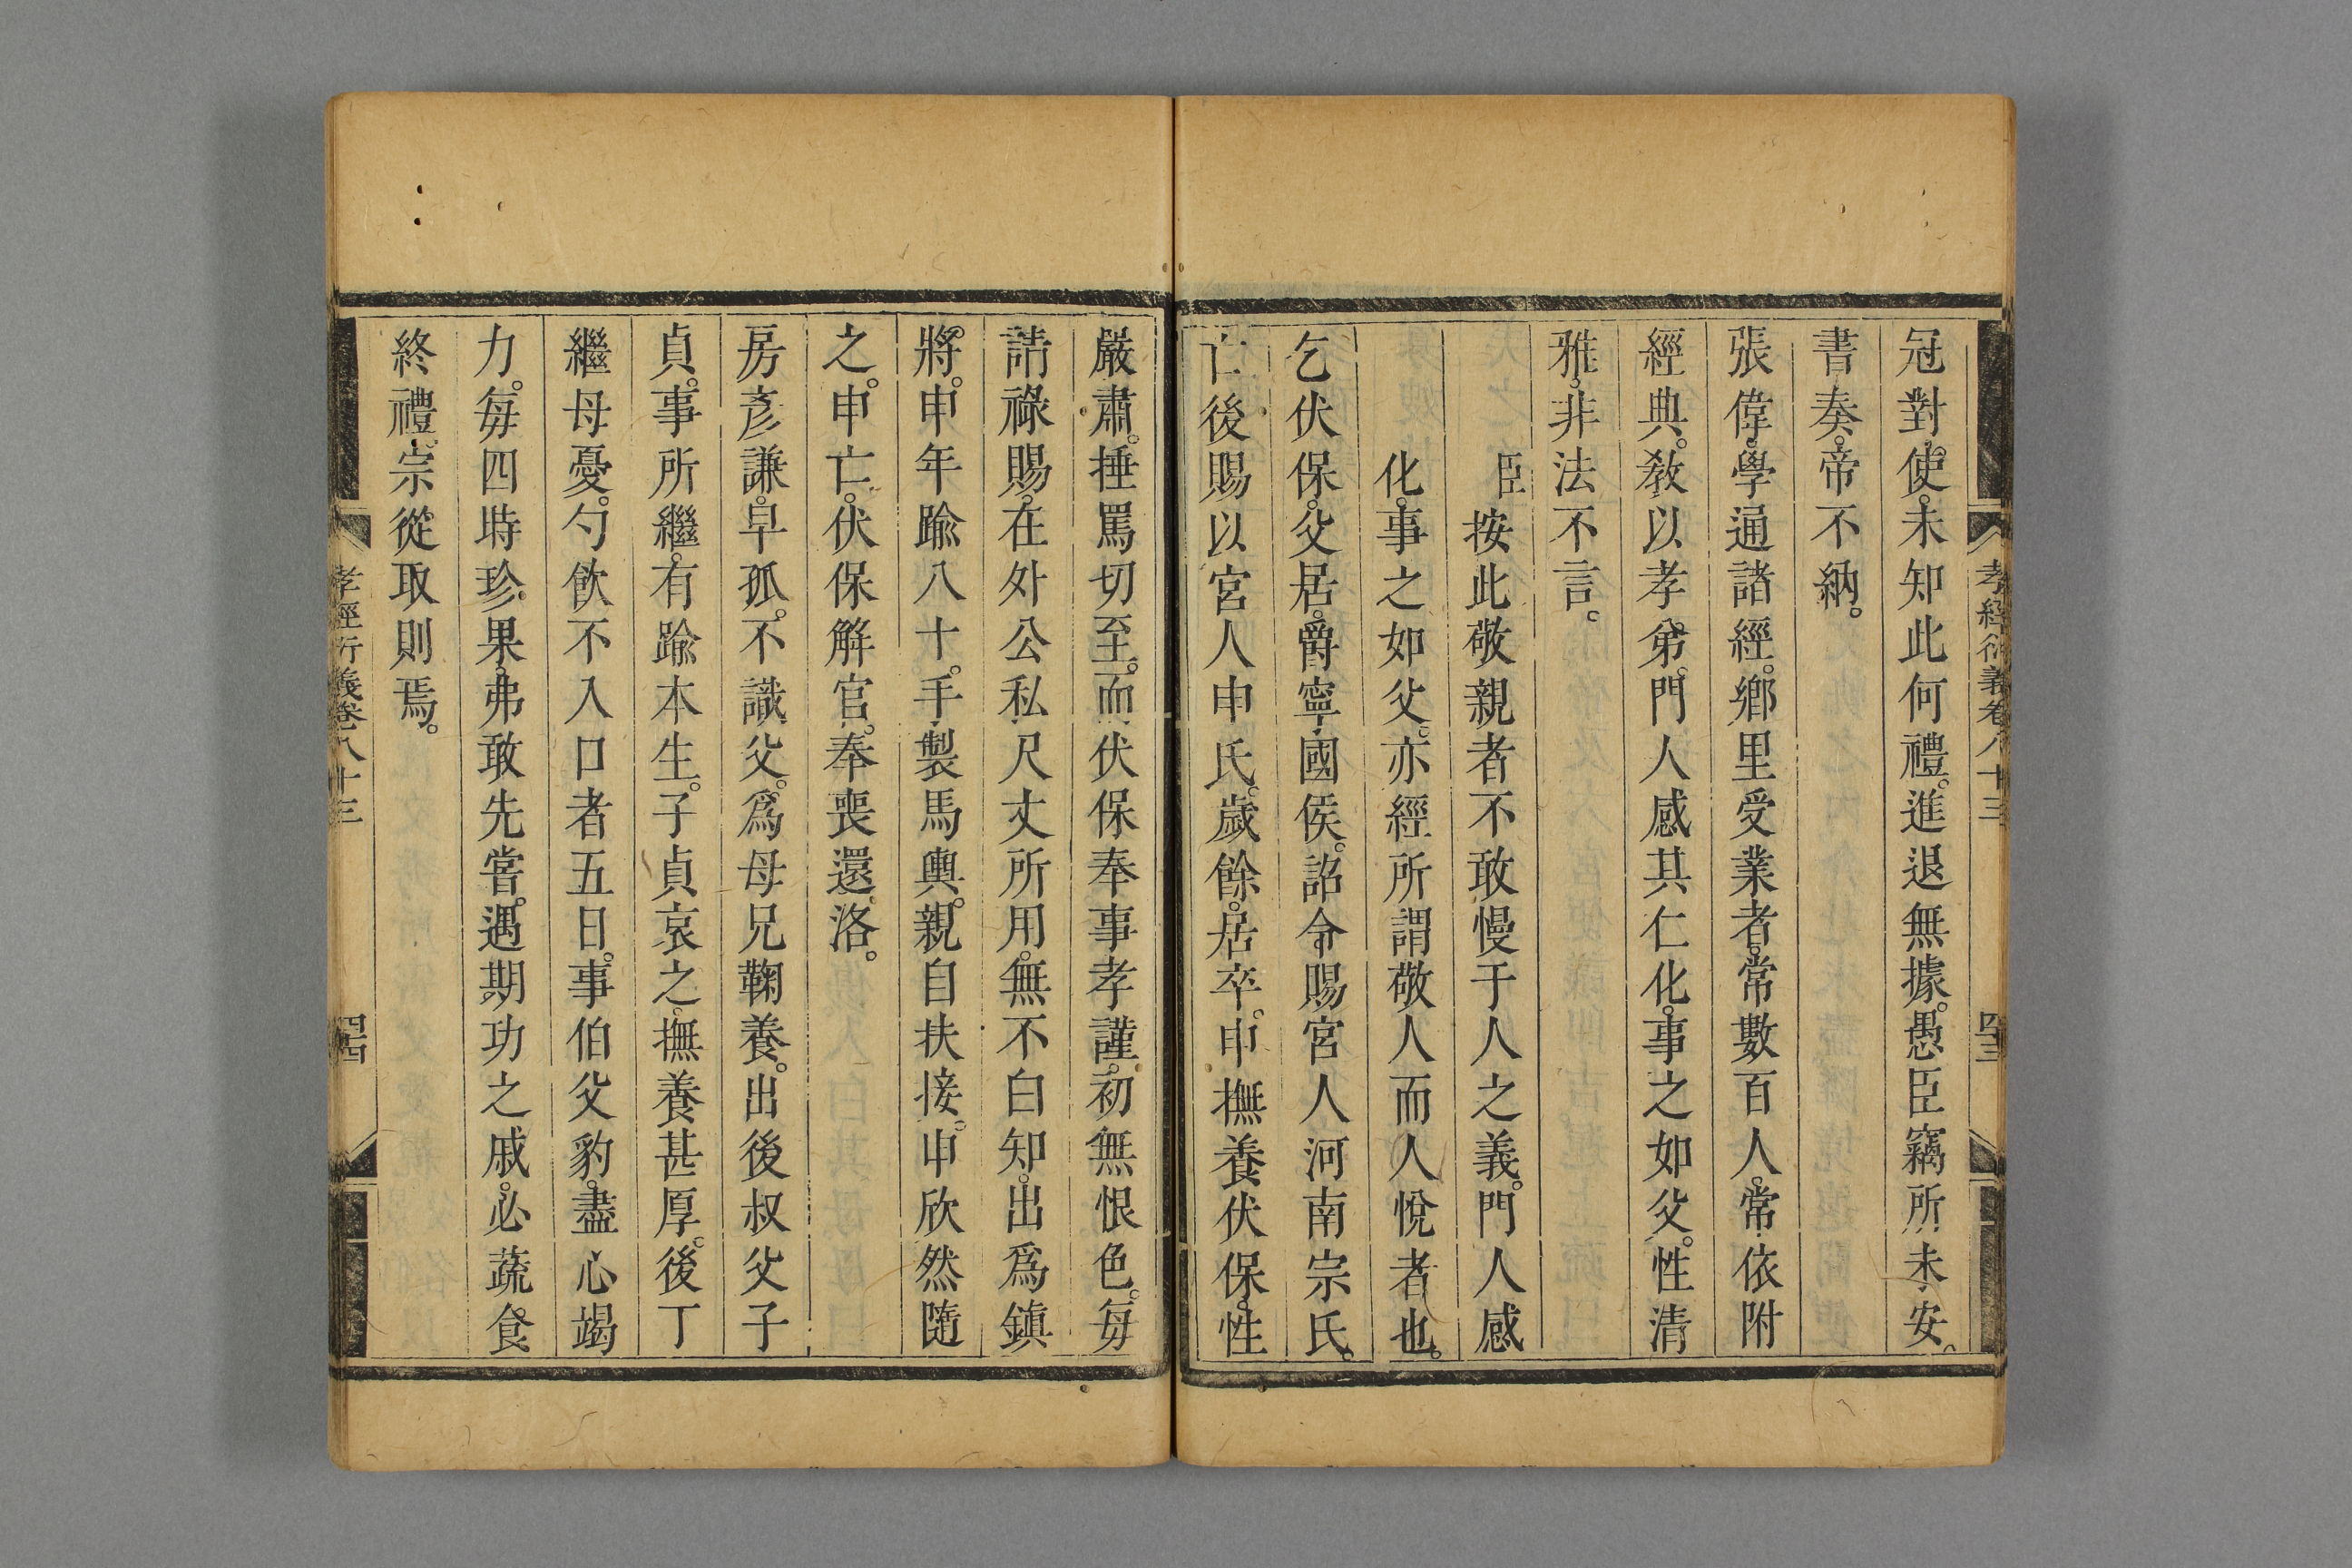 孝經衍義卷八十三
四十三
冠對使。未知此何禮。進退無據。愚臣竊所未安。
書奏。帝不納。
張偉。學通諸經。鄉里受業者。常數百人。常依附
經典。教以孝弟。門人感其仁化。事之如父。性清
雅。非法不言。
臣按此敬親者不敢慢于人之義。門人感
化。事之如父。亦經所謂敬人而人悅者也。
乞伏保。父居。爵寧國侯。詔令賜宮人河南宗氏。
亡後賜以宮人申氏。歲餘。居卒。申撫養伏保。性
嚴肅。捶罵切至。而伏保奉事孝謹。初無恨色。每
請祿賜。在外公私尺丈所用。無不白知。出爲鎮
將。申年踰八十。手製馬輿。親自扶接。申欣然隨
之。申亡。伏保解官。奉喪還洛。
房彥謙。早孤。不識父。爲母兄鞠養。出後叔父子
貞。事所繼。有踰本生。子貞哀之。撫養甚厚。後丁
繼母憂。勺飲不入口者五日。事伯父豹。盡心竭
力。每四時珍果。弗敢先嘗。遇期功之戚。必蔬食
終禮。宗從取則焉。
孝經衍義卷八十三
四十四